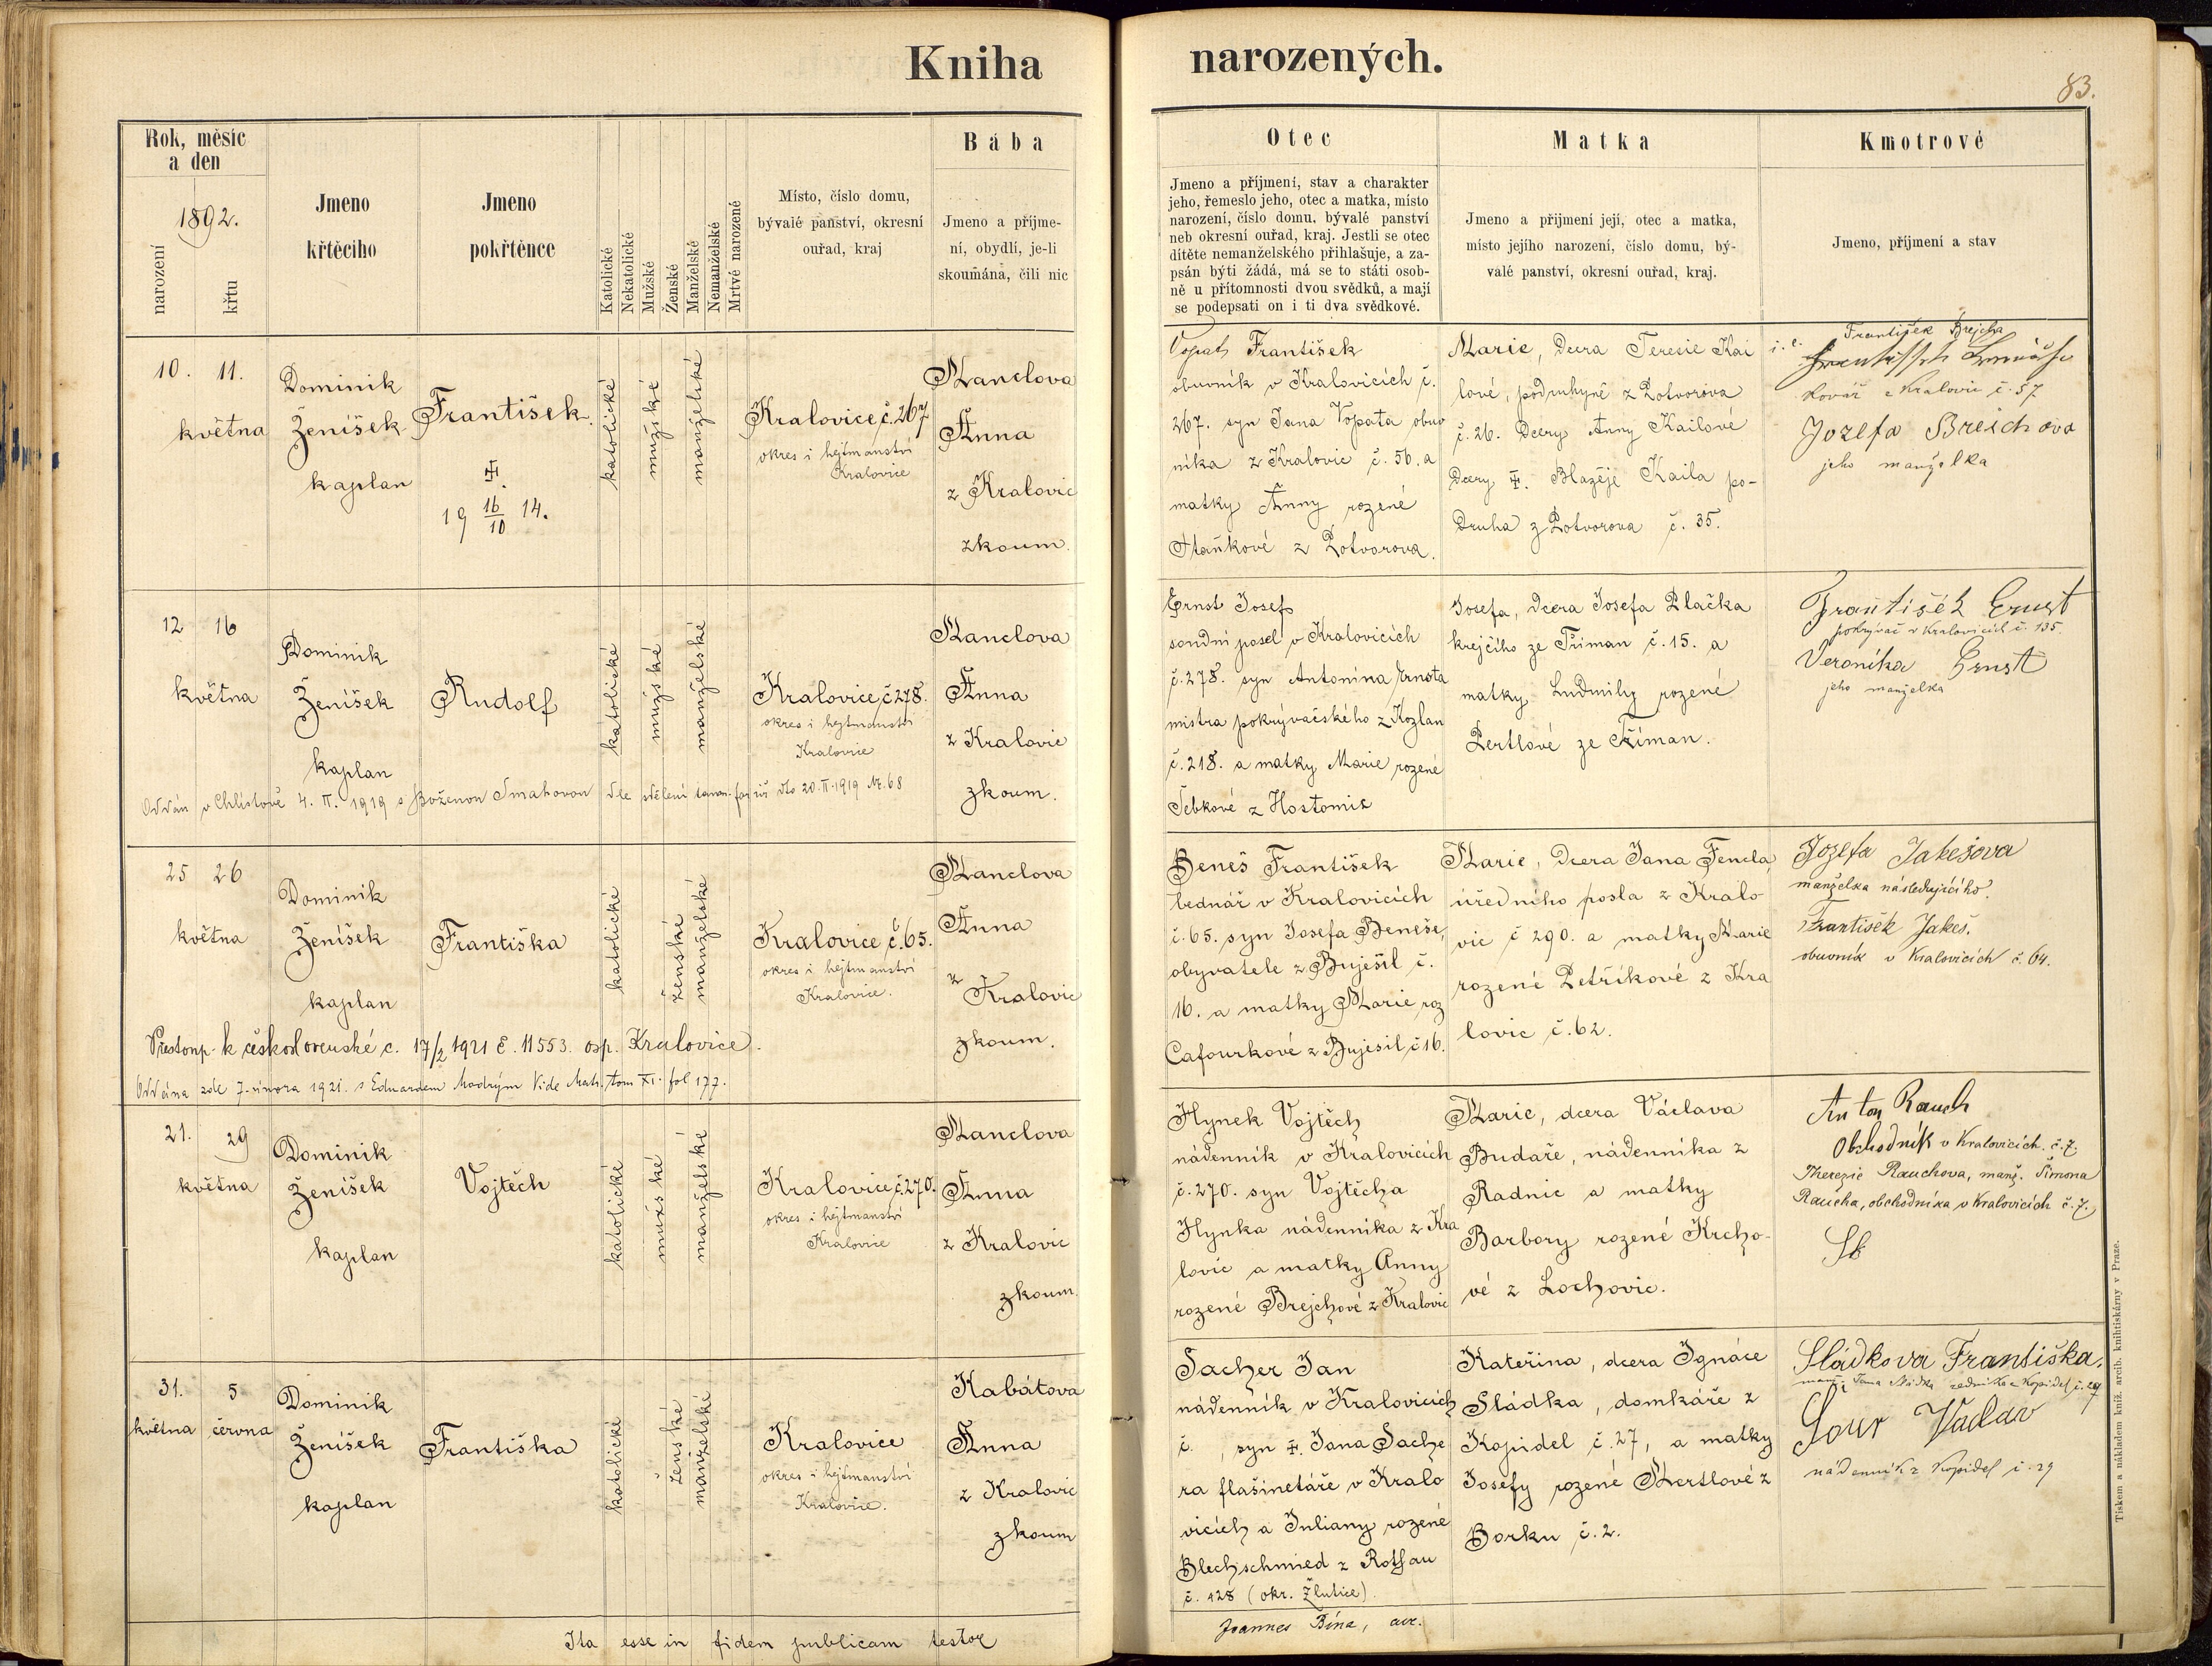 Kniha narozených.
83.
Rok, měsíc
a den
1892.
narození
křtu
Jmeno
křtěcího
Jmeno
pokřtěnce
Katolické
Nekatolické
Mužské
Ženské
Manželské
Nemanželské
Mrtvé narozené
Místo, číslo domu,
bývalé panství, okresní
ouřad, kraj
Bába
Jmeno a příjme-
ní, obydlí, je-li
skoumána, čili nic
Otec
Jmeno a příjmení, stav a charakter
jeho, řemeslo jeho, otec a matka, místo
narození, číslo domu, bývalé panství
neb okresní ouřad, kraj. Jestli se otec
dítěte nemanželského přihlašuje, a za-
psán býti žádá, má se to státi osob-
ně u přítomnosti dvou svědků, a mají
se podepsati on i ti dva svědkové.
Matka
Jmeno a přijmení její, otec a matka,
místo jejího narození, číslo domu, bý-
valé panství, okresní ouřad, kraj.
Kmotrové
Jmeno, příjmení a stav
10. 11.
května
Dominik
Ženíšek
kaplan
František.
19 16/10 14.
katolické
mužské
manželské
Kralovice, č. 267
okres i hejtmanství
Kralovice
Manclova
Anna
z Kralovic
zkoum.
Vopat František
obuvník v Kralovicích č.
267. syn Jana Vopata obuv
níka z Kralovic č. 56. a
matky Anny rozené
Staňkové z Potvorova.
Marie, dcera Teresie Kai
lové, podruhyně z Potvorova
č. 26. dcery Anny Kailové
dcery Blažeje Kaila po-
druha z Potvorova č. 35.
i. e. František Brejcha
kovář z Kralovic č. 57
Jozefa Breichova
jeho manželka
12 16
května
Dominik
Ženíšek
kaplan
Rudolf
katolické
mužské
manželské
Kralovice, č. 278.
okres i hejtmanství
Kralovice
Manclova
Anna
z Kralovic
zkoum.
Oddán v Chlístově 4. II. 1919 s Boženou Smahovou dle sdělení dto 20.II.1919 Nr. 68
Ernst Josef
soudní posel v Kralovicích
č. 278. syn Antonína Ernsta
mistra pokrývačského z Kozlan
č. 218. a matky Marie rozené
Šebkové z Hostomic
Josefa, dcera Josefa Plačka
krejčího ze Tříman č. 15. a
matky Ludmily rozené
Pertlové ze Tříman.
František Ernst
pokrývač v Kralovicích č. 135.
Veronika Ernst
jeho manželka
25 26
května
Dominik
Ženíšek
kaplan
Františka
katolické
ženské
manželské
Kralovice č. 65.
okres i hejtmanství
Kralovice.
Manclova
Anna
z Kralovic
zkoum.
Přestoup. k československé c. 17/2 1921 č. 11553. osp. Kralovice.
Oddána zde 7. února 1921. s Eduardem Modrým Vide Matr. tom XI. fol 177.
Beneš František
bednář v Kralovicích
č. 65. syn Josefa Beneše,
obyvatele z Bujesil č.
16. a matky Marie roz
Cafourkové z Bujesil č 16.
Marie, dcera Jana Fencla,
úředního posla z Kralo
vic č 290. a matky Marie
rozené Petříkové z Kra
lovic č. 62.
Jozefa Jakešova
manželka následujícího.
František Jakeš.
obuvník v Kralovicích č. 64.
21. 29
května
Dominik
Ženíšek
kaplan
Vojtěch
katolické
mužské
manželské
Kralovice, č. 270.
okres i hejtmanství
Kralovice
Manclova
Anna
z Kralovic
zkoum.
Hynek Vojtěch
nádenník v Kralovicích
č. 270. syn Vojtěcha
Hynka nádenníka z Kra
lovic a matky Anny
rozené Brejchové z Kralovic
Marie, dcera Václava
Budaře, nádenníka z
Radnic a matky
Barbory rozené Krcho-
vé z Lochovic.
Anton Rauch
Obchodník v Kralovicích. č. 7.
Therezie Rauchova, manž. Šimona
Raucha, obchodníka v Kralovicích č. 7.
31. 5
května června
Dominik
Ženíšek
kaplan
Františka
katolické
ženské
manželské
Kralovice
okres i hejtmanství
Kralovice.
Kabátova
Anna
z Kralovic
zkoum
Sacher Jan
nádenník v Kralovicích
č. , syn Jana Sache
ra flašinetáře v Kralo
vicích a Juliany rozené
Blechschmied z Rotsau
č. 128 (okr. Žlutice).
Kateřina, dcera Ignáce
Sládka, domkáře z
Kopidel č. 27, a matky
Josefy rozené Mertlové z
Borku č. 2.
Sládkova Františka.
manž. Jana Sládka zedníka z Kopidel č. 29
Sour Vaclav
nádenník z Kopidel č. 29
Ita esse in fidem publicam testor
Joannes Bína,
Tiskem a nákladem kníž. arcib. knihtiskárny v Praze.